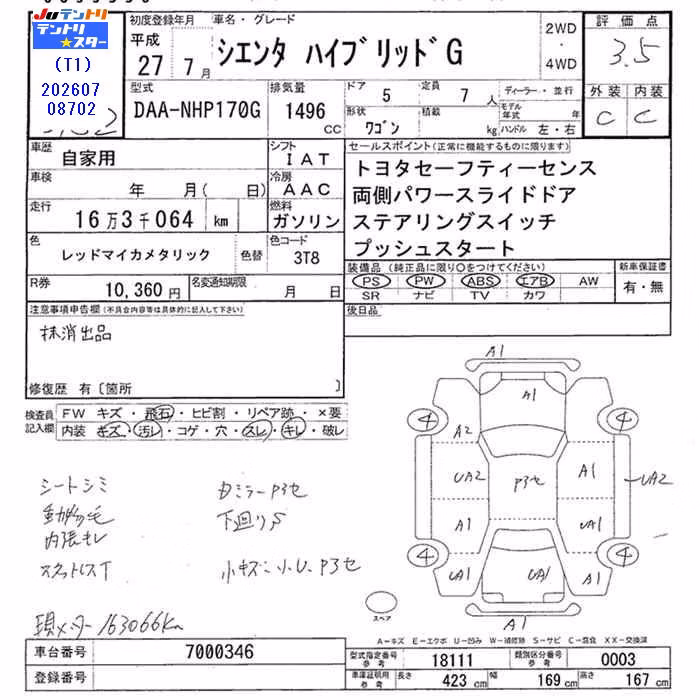 Juテントリ
テントリ
★スター
(T1)
202607
08702
初度登録年月
平成
27年 7月
車名・グレード
シエンタ ハイブリッドG
2WD
・
4WD
評価点
3.5
外装 内装
C C
型式
DAA-NHP170G
排気量
1496
CC
ドア 5
定員 7人
形状 ワゴン
積載 kg
ディーラー・並行
モデル年式 年式
ハンドル 左・右
車歴
自家用
シフト
IAT
車検
年 月( 日)
冷房
AAC
走行
16万3千064 km
燃料
ガソリン
色
レッドマイカメタリック
色替
色コード
3T8
R券
10,360円
名変通知期限
月 日
セールスポイント(正常に機能するものに限ります)
トヨタセーフティーセンス
両側パワースライドドア
ステアリングスイッチ
プッシュスタート
装備品(純正品に限り〇をつけてください)
PS PW ABS エアB AW
SR ナビ TV カワ
新車保証書
有・無
後日品
注意事項申告欄(不具合内容等は具体的に記入して下さい)
抹消出品
修復歴 有〔箇所 〕
検査員記入欄
FW キズ・飛石・ヒビ割・リペア跡・×要
内装 キズ・汚レ・コゲ・穴・スレ・キレ・破レ
シートシミ
内張キレ
現メーター163066Km
カミラーP3セ
下回りS
小キズ・小U、P3セ
A1
A1
4
4
A2
UA2
P3セ
A1
UA2
A1
UA1
4
4
UA1
UA1
A1
A1
スペア
A-キズ E-エクボ U-凹み W-補修跡 S-サビ C-腐食 XX-交換済
車台番号
7000346
登録番号
型式指定番号
参考
18111
類別区分番号
参考
0003
車庫証明用
参考
長さ 423 cm
幅 169 cm
高さ 167 cm